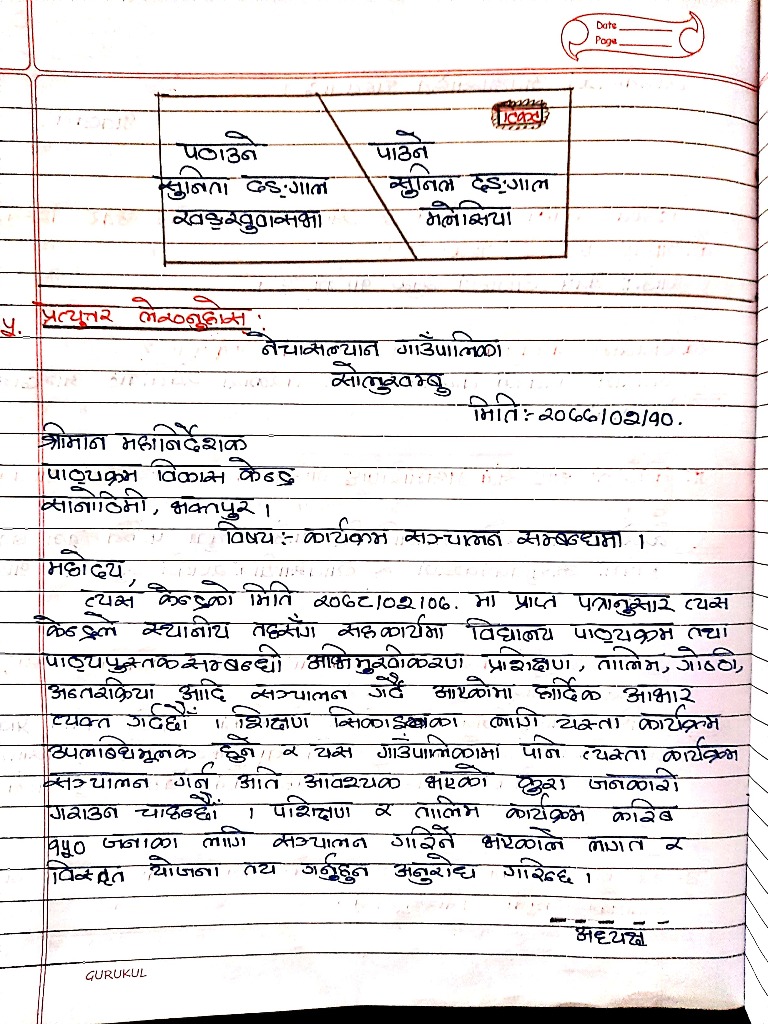 Date
Page
टिकट
पठाउने
पाउने
सुनिता दङ्गाल
सुनिल दङ्गाल
मलेसिया
५. प्रत्युत्तर लेख्नुहोस :
नेचासल्यान गाउँपालिका
सोलुखुम्बु
मिति:- २०७७/०२/१०.
श्रीमान महानिर्देशक
पाठ्यक्रम विकास केन्द्र
सानोठिमी, भक्तपुर ।
विषय:- कार्यक्रम सञ्चालन सम्बन्धमा ।
महोदय,
त्यस केन्द्रको मिति २०७८/०२/०७. मा प्राप्त पत्रानुसार त्यस
केन्द्रले स्थानीय तहसँग सहकार्यमा विद्यालय पाठ्यक्रम तथा
पाठ्यपुस्तक सम्बन्धी अभिमुखीकरण प्रशिक्षण, तालिम, गोष्ठी,
अन्तरक्रिया आदि सञ्चालन गर्दै आएकोमा हार्दिक आभार
व्यक्त गर्दछौं । शिक्षण सिकाइका लागि यस्ता कार्यक्रम
उपलब्धिमूलक हुने र यस गाउँपालिकामा पनि त्यस्ता कार्यक्रम
सञ्चालन गर्न अति आवश्यक भएको कुरा जनकारी
गराउन चाहन्छौं । पशिक्षण र तालिम कार्यक्रम करिब
१५० जनाका लागि सञ्चालन गरिने भएकाले लागत र
विस्तृत योजना तय गर्नुहुन अनुरोध गरिन्छ ।
अध्यक्ष
GURUKUL